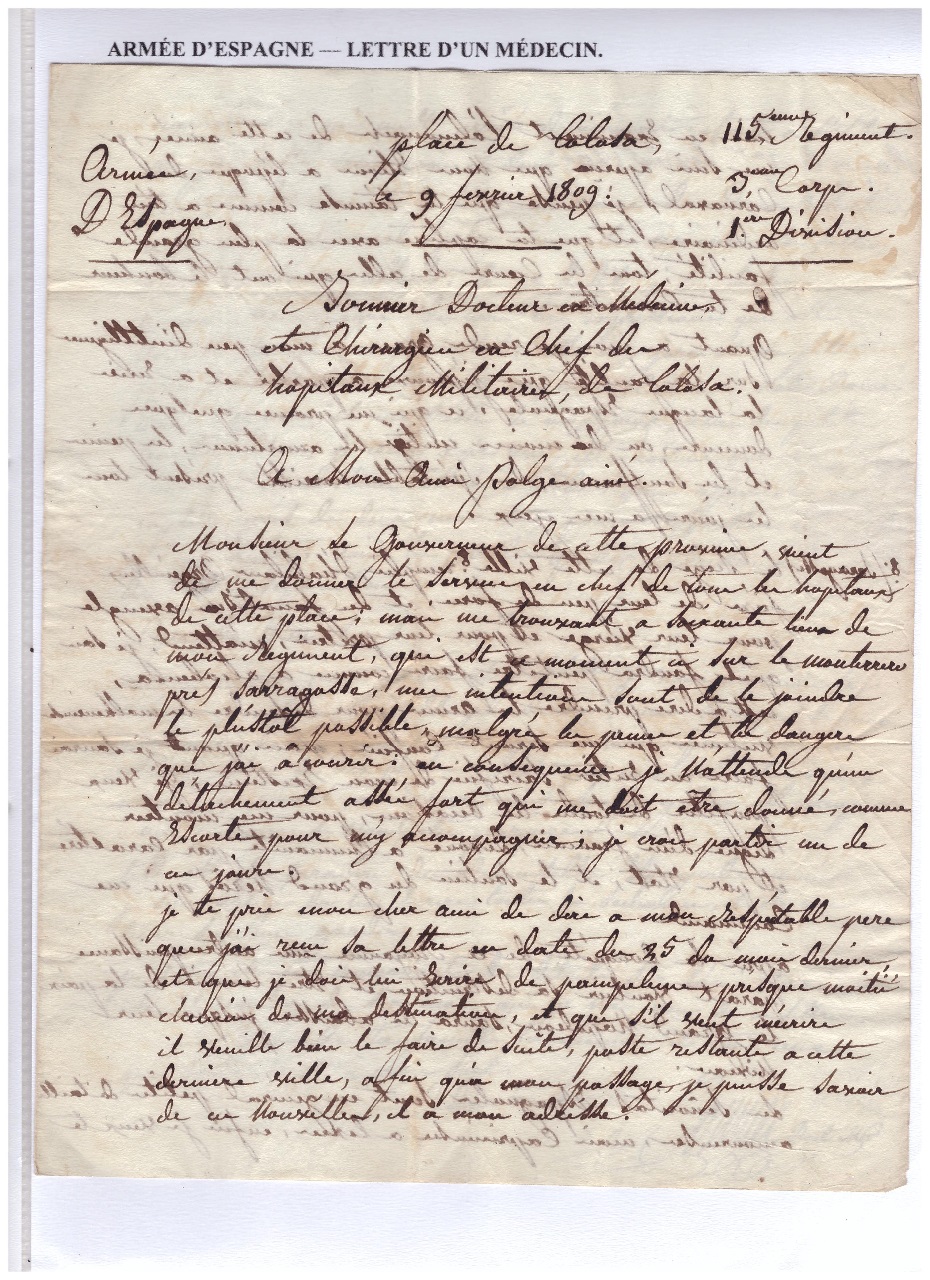 ARMÉE D'ESPAGNE — LETTRE D'UN MÉDECIN.
Armée,
D'Espagne
place de Tolosa,
le 9 fevrier 1809.
115eme Regiment.
3eme Corps.
1ere Division.
Docteur en Medecine,
et Chirurgien en Chef des
hopitaux Militaires, de Tolosa.
A Mon Ami polge ainé.
Monsieur Le Gouverneur de cette province vient
de me donner le service en chef de tous les hopitaux
de cette place; mais me trouvant a soixante lieux de
mon Regiment, qui est ce moment ci sur le monterrero
pres sarragosse, mes intentions sont de le joindre
le plustôt possible, malgré les peines et les dangers
que j'ai a courir: en consequence je N'attends qu'un
détachement assés fort qui me doit etre donné, comme
Escorte pour m'y accompagner; je crois partir un de
ces jours.
je te prie mon cher ami de dire a mon respectable pere
que j'ai recu sa lettre en date du 25 du mois dernier,
et que je dois lui Ecrire de pampelune, presque moitié
chemin de ma destination, et que s'il veut m'ecrire
il veuille bien le faire de suite, poste restante a cette
derniere ville, afin qu'a mon passage, je puisse savoir
de ces Nouvelles, et a mon adresse.